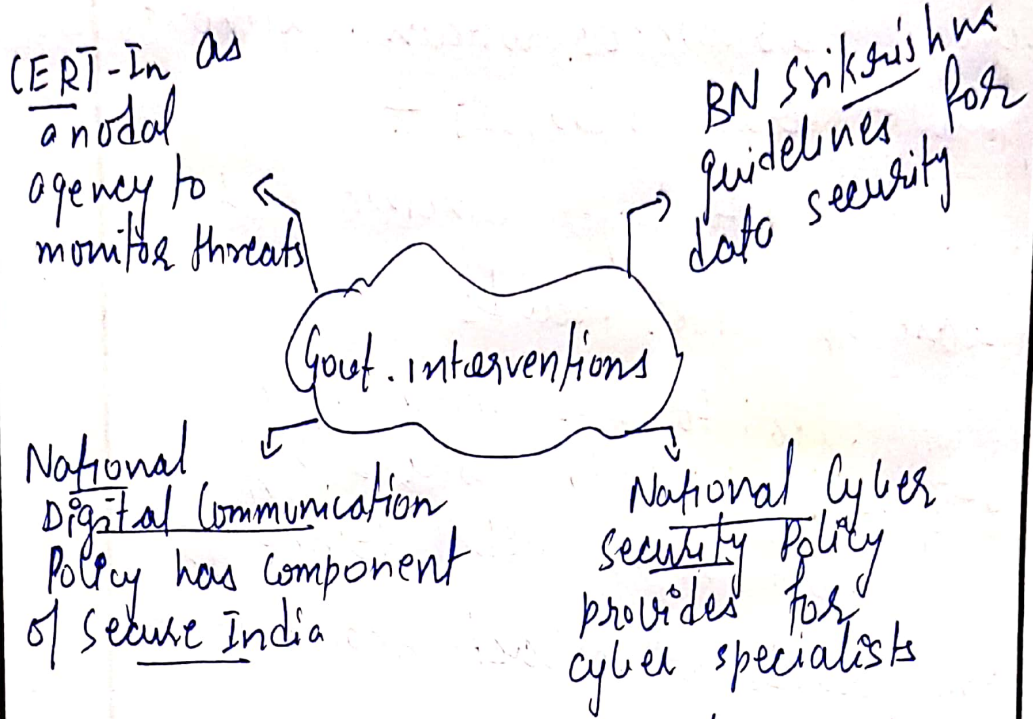 CERT-In as
a nodal
agency to
monitor threats
BN Srikrishna
guidelines for
data security
Govt. interventions
National
Digital Communication
Policy has component
of Secure India
National Cyber
security Policy
provides for
cyber specialists